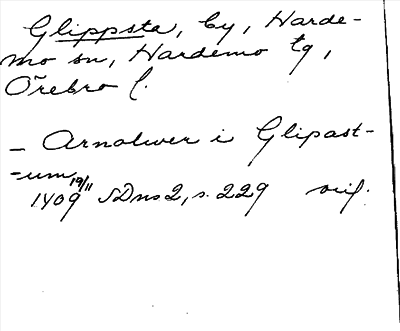 Glippsta, by, Harde-
mo sn, Hardemo tg,
Örebro l.
- Arnolwer i Glipast-
-um
1409 19/11 SDns 2, s. 229 orig.